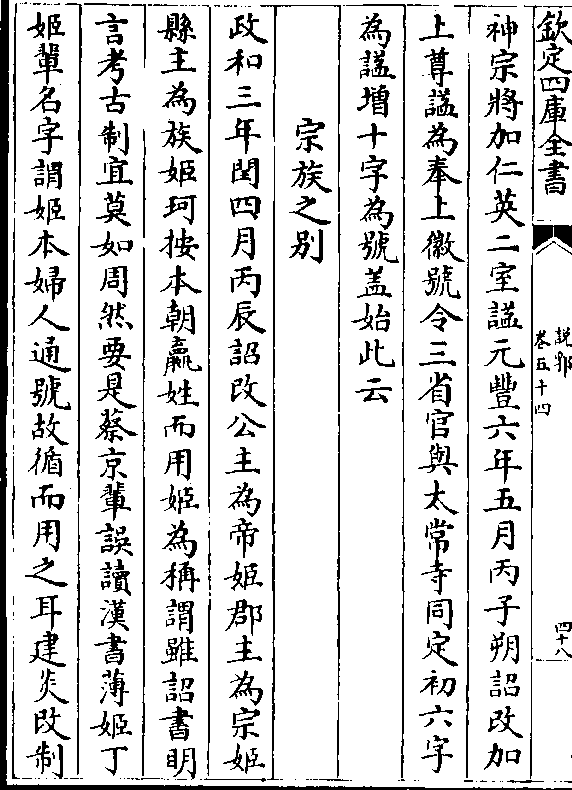 欽定四庫全書
說郛
卷五十四
四十八
神宗將加仁英二室諡元豐六年五月丙子朔詔改加
上尊諡為奉上徽號令三省官與太常寺同定初六字
為諡增十字為號蓋始此云
宗族之别
政和三年閏四月丙辰詔改公主為帝姬郡主為宗姬
縣主為族姬珂按本朝嬴姓而用姬為稱謂雖詔書明
言考古制宜莫如周然要是蔡京輩誤讀漢書薄姬丁
姬輩名字謂姬本婦人通號故循而用之耳建炎改制